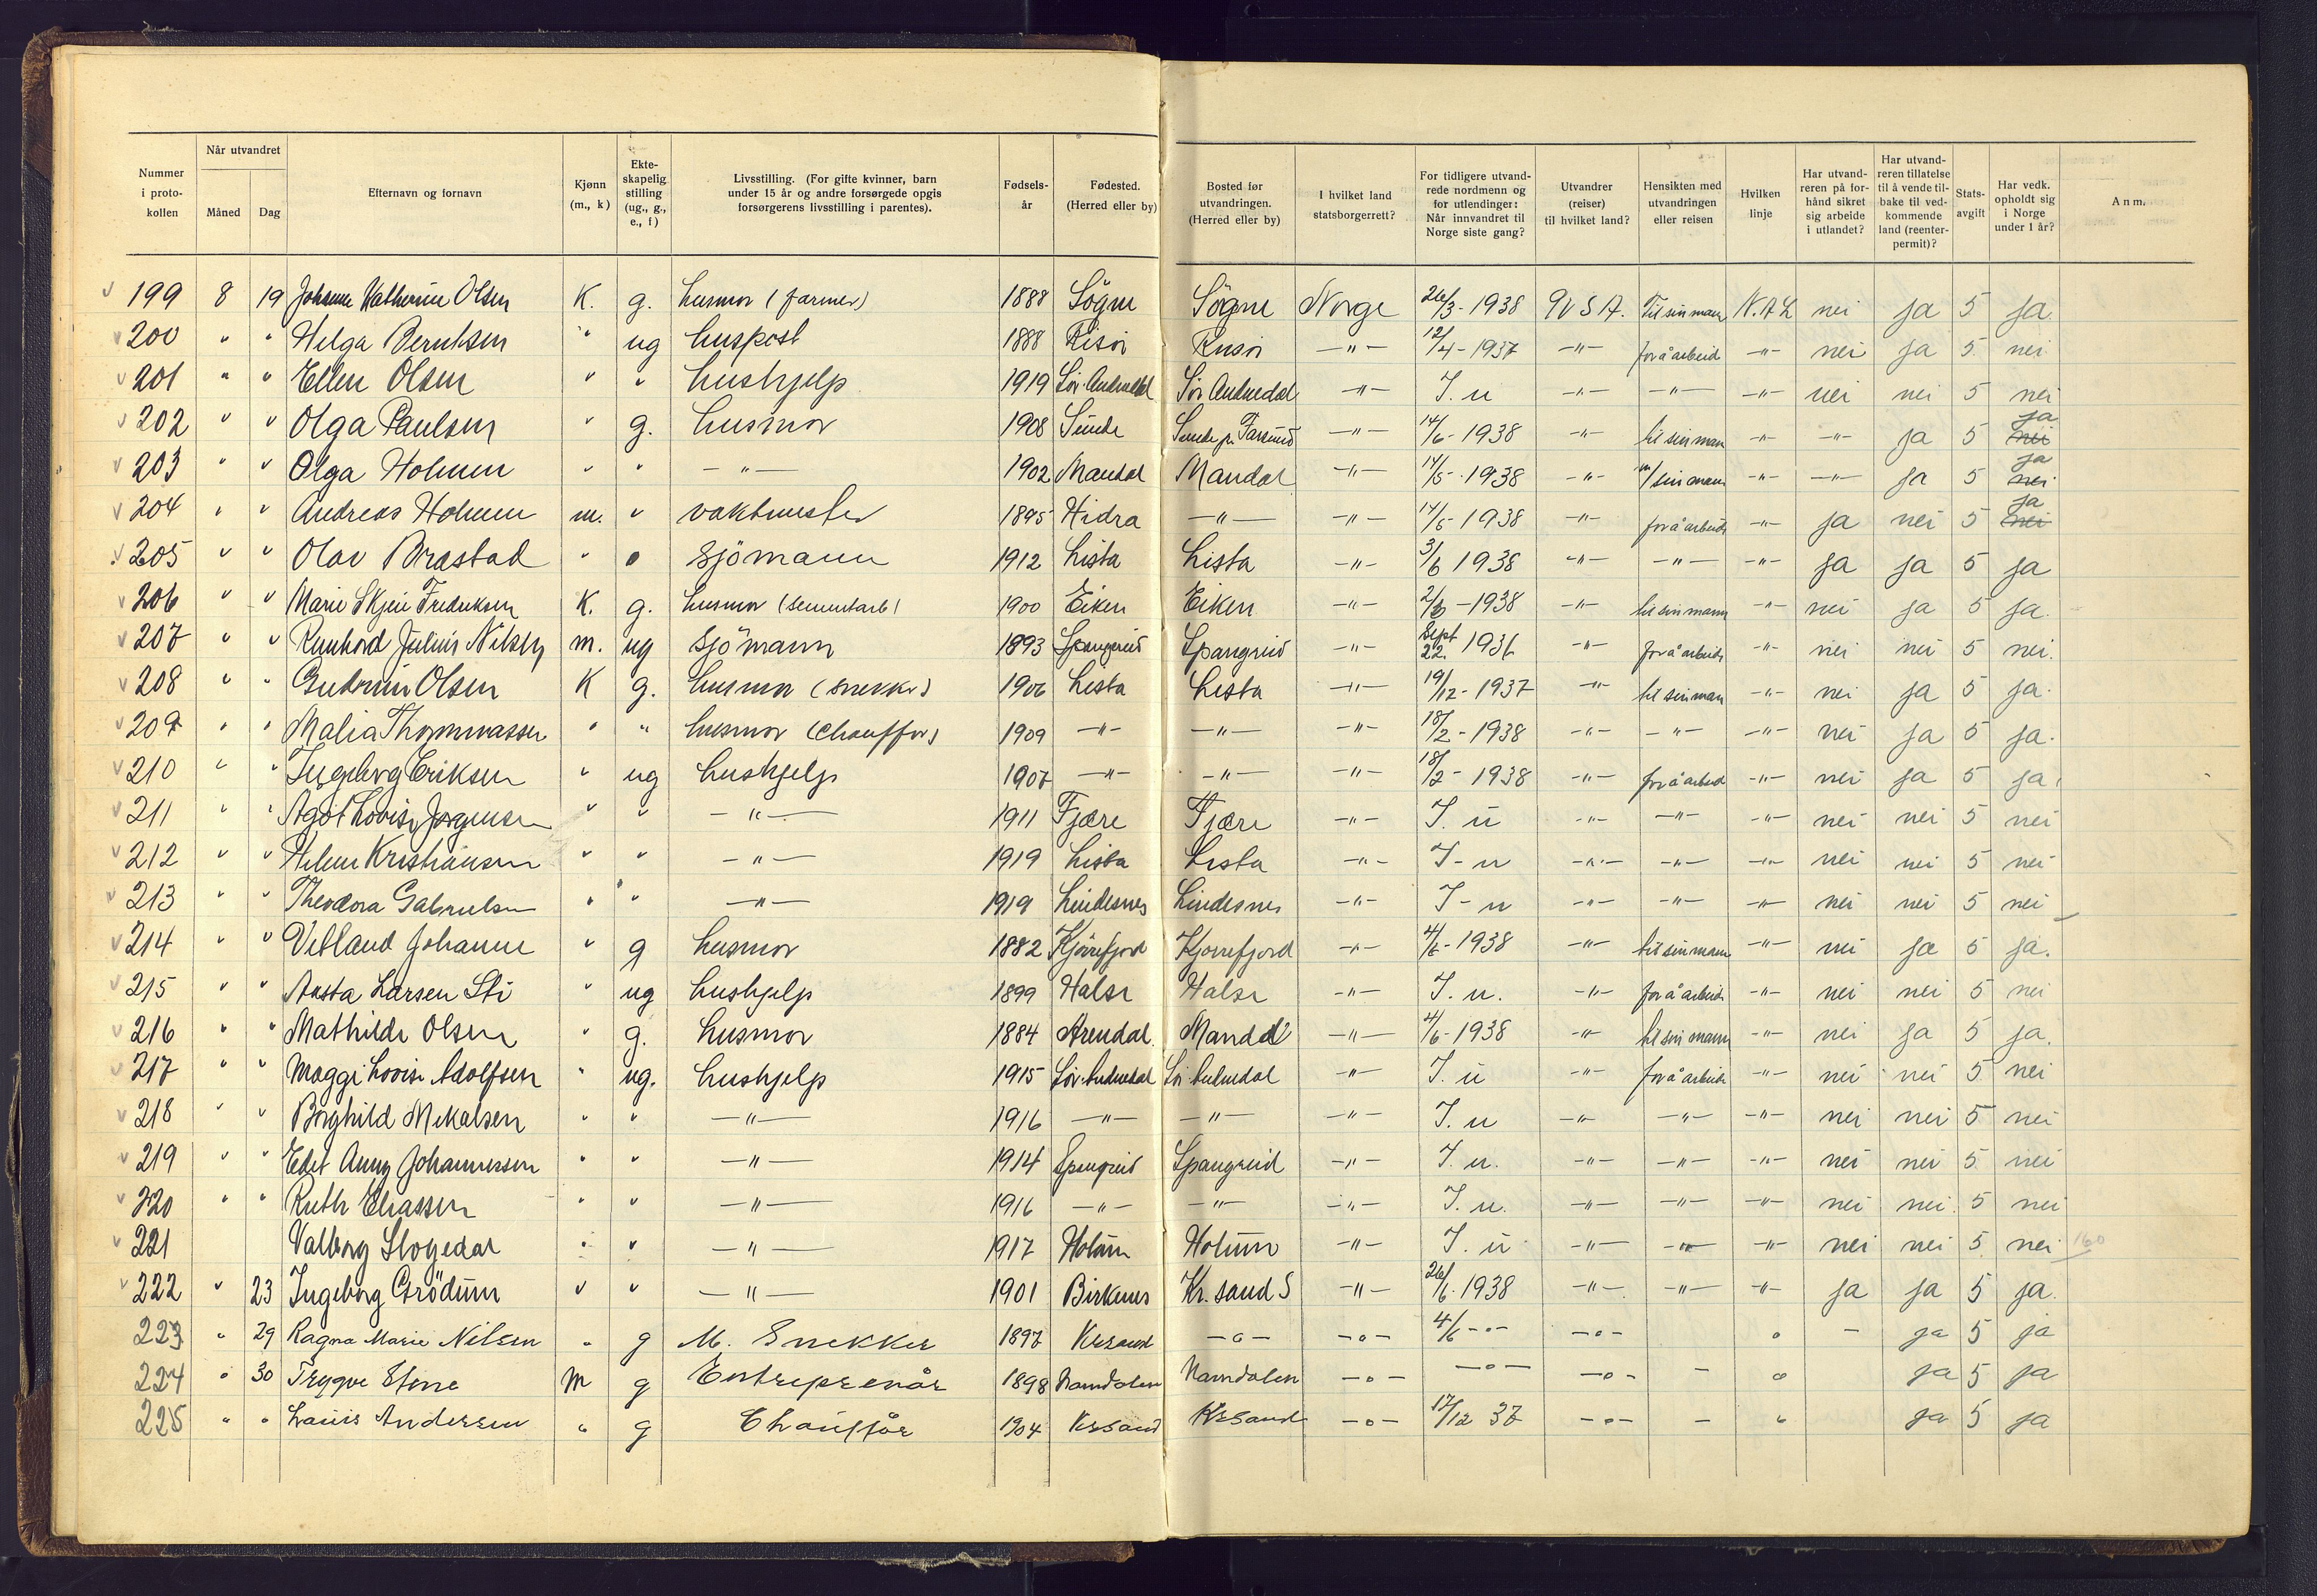 Nummer i protokollen | Når utvandret Måned | Dag | Efternavn og fornavn | Kjønn (m., k) | Ekteskapelig stilling (ug., g., e., f) | Livsstilling. (For gifte kvinner, barn under 15 år og andre forsørgede opgis forsørgerens livsstilling i parentes). | Fødselsår | Fødested. (Herred eller by) | Bosted før utvandringen. (Herred eller by) | I hvilket land statsborgerrett? | For tidligere utvandrede nordmenn og for utlendinger: Når innvandret til Norge siste gang? | Utvandrer (reiser) til hvilket land? | Hensikten med utvandringen eller reisen | Hvilken linje | Har utvandreren på forhånd sikret sig arbeide i utlandet? | Har utvandreren tillatelse til å vende tilbake til vedkommende land (reenterpermit)? | Statsavgift | Har vedk. opholdt sig i Norge under 1 år? | Anm.
199 8 19 Johanne Katherine Olsen K. g. husmor (farmer) 1888 Sögne Sögne Norge 26/3-1938 U S A. Til sin mann N.A.L nei ja 5 ja.
200 " " Helga Berntsen " ug huspost 1888 Risör Risör -"- 12/4-1937 -"- for å arbeide -"- nei ja 5 nei
201 " " Ellen Olsen " " hushjelp 1919 Sör Audnedal Sör Audnedal -"- I. u -"- -"- -"- nei nei 5 nei
202 " " Olga Paulsen " g. husmor 1908 Sunde Sunde pr. Farsund -"- 14/6-1938 -"- til sin man -"- -"- ja 5 nei ja
203 " " Olga Holmen " " -"- 1902 Mandal Mandal -"- 14/5-1938 -"- m/sin mann -"- -"- ja 5 nei ja
204 " " Andreas Holmen m. " vaktmester 1895 Hidra -"- -"- 14/5-1938 -"- for å arbeide -"- ja nei 5 nei ja
205 " " Olav Brastad " " sjömann 1912 Lista Lista -"- 3/6 1938 -"- -"- -"- ja ja 5 ja
206 " " Marie Skjeie Fredriksen K. g. husmor (sementarb) 1900 Eiken Eiken -"- -1938 -"- til sin mann -"- nei ja 5 ja.
207 " " Reinhord Julius Nilsen m. ug sjömann 1893 Spangereid Spangreid -"- Sept 22. 1936 -"- for å arbeide -"- nei nei 5 nei.
208 " " Gudrun Olsen K g. husmor (snekker) 1906 Lista Lista -"- 19/12-1937 -"- til sin man -"- nei ja 5 ja.
209 " " Malia Thommassen " " husmor (Chauffør) 1909 -"- -"- -"- 18/2-1938 -"- -"- -"- nei ja 5 ja.
210 " " Ingeborg Eriksen " ug hushjelp 1907 -"- -"- -"- 18/2-1938 -"- for å arbeid -"- nei ja 5 ja.
211 " " Agot Lovise Jørgensen " " -"- 1911 Fjære Fjære -"- I. u -"- -"- -"- nei nei 5 nei
212 " " Helene Kristiansen " " -"- 1919 Lista Lista -"- I-u -"- -"- -"- nei nei 5 nei
213 " " Theodora Gabrielsen " " -"- 1919 Lindesnes Lindesnes -"- I-u -"- -"- -"- nei nei 5 nei
214 " " Vetland Johanne " g husmor 1882 Kjörrefjord Kjörrefjord -"- 4/6-1938 -"- til sin mann -"- nei ja 5 ja.
215 " " Aasta Larsen Sti " ug hushjelp 1899 Halse Halse -"- I. u. -"- for å arbeide -"- nei nei 5 nei
216 " " Mathilde Olsen " g. husmor 1884 Arendal Mandal -"- 4/6-1938 -"- til sin mann -"- nei ja 5 ja.
217 " " Maggi Lovise Adolfsen " ug. hushjelp 1915 Sör Audnedal Sör Audnedal -"- I. u -"- for å arbeide -"- nei nei 5 nei
218 " " Borghild Mikalsen " " -"- 1916 -"- -"- -"- I. u -"- -"- -"- nei nei 5 nei
219 " " Edit Anny Johannessen " " -"- 1914 Spangreid Spangreid -"- I. u. -"- -"- -"- nei nei 5 nei
220 " " Ruth Eliassen " " -"- 1916 -"- -"- -"- I. u. -"- -"- -"- nei nei 5 nei
221 Valborg Slogedal " " -"- 1917 Holum Holum -"- I. u -"- -"- -"- nei nei 5 nei 160
222 " 23 Ingeborg Grödum " " -"- 1901 Birkenes Kr.sand S -"- 26/6-1938 -"- -"- -"- ja ja 5 ja.
223 " 29 Ragna Marie Nilsen " g M. Snekker 1897 Krsand -"- -"- 4/6 -"- -"- " - ja 5 ja
224 " 30 Trygve Stene M g Entreprenør 1898 Namdalen Namdalen -"- -"- -"- - " ja 5 ja
225 " " Lauis Andersen " g Chauffør 1904 Krsand Krsand -"- 17/12 37 -"- - " ja 5 ja